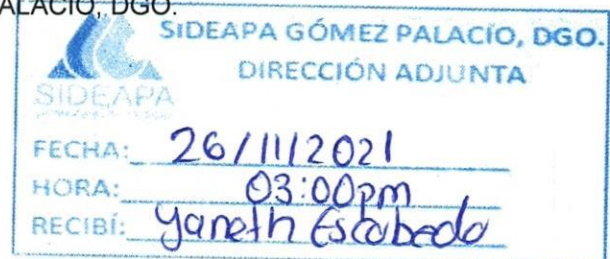 ALACIO, DGO.
SIDEAPA GÓMEZ PALACÍO, DGO.
DIRECCIÓN ADJUNTA
SIDEAPA
FECHA: 26/11/2021
HORA: 03:00pm
RECIBÍ: Yaneth Escobedo